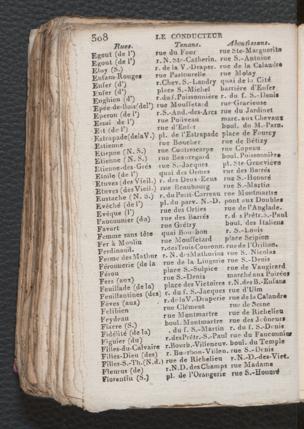 308 LE CONDUCTEUR
Rues. Tenans. Aboutissans.
Egout (de l') rue du Four rue Ste-Marguerite
Egout (de l') r. N. Ste-Catherin. rue S.-Antoine
Eloy (S.) r. de la V.-Draper. rue de la Calandre
Enfans-Rouges rue Pastourelle rue Molay
Enfer (d') r. Chev. S.-Landry quai de la Cité
Enfer (d') place S.-Michel barrière d'Enfer
Enghien (d') r. du f. S.-Denis
Epée-de-Bois (de l') rue Mouffetard rue Gracieuse
Eperon (de l') r. S.-And.-des-Arcs rue du Jardinet
Essai de l') rue Poliveau marc. aux Chevaux
Est (de l') rue d'Enfer boul. du M. Parn.
Estrapade (de la V.) pl. de l'Estrapade place de Fourcy
Estienne rue Boucher rue de Bétizy
Etienne (N. S.) rue Contrescarpe rue Copeau
Etienne (N. S.) rue Beauregard boul. Poissonnière
Etienne-des-Grés rue S.-Jacques pl. Ste Geneviève
Etoile (de l') quai des Ormes rue des Barrés
Etuves (des Vieil.) r. des Deux-Ecus rue S.-Honoré
Etuves (des Vieil.) rue Beaubourg rue S.-Martin
Eustache (N. S.) r. du Petit-Carreau rue Montmartre
Evêché (de l') pl. du parv. N.-D. pont aux Doubles
Evêque (l') rue des Orties rue de l'Anglade.
Fauconnier (du) rue des Barrés r. d s Prêtr. S.-Paul
Favart rue Grétry boul. des Italiens
Femme sans tête quai Bourbon r. S.-Louis
Fer à Moulin rue Mouffetard place Scipion
Ferdinand r. des Trois Couronn. rue de l'Orillon.
Ferme des Mathur r. N. d s Mathurins rue S. Nicolas
Féronnerie (de la rue de la Lingerie rue S.-Denis
Férou place S.-Sulpice rue de Vaugirard
Fers (aux) rue S.-Denis marché aux Poirées
Feuillade (de la) place des Victoires r. N. des B.-Enfans
Feuillantines (des) r. du f. S.-Jacques rue d'Ulm
Fèves (aux) r. de la V.-Draperie rue de la Calandre
Félibien rue Clément rue de Seine
Feydeau rue Montmartre rue de Richelieu
Fiacre (S.) boul. Montmartre rue des Jeûneurs
Fidélité (de la) r. du f. S.-Martin r. du f. S.-Denis
Figuier (du) r. des Prêtr.-S.-Paul rue du Fauconnier
Filles-du-Calvaire r. Bouch.-Villeneuv. boul. du Temple
Filles-Dieu (des) r. Bourbon-Villen. rue S.-Denis
Filles-S.-Th. (N. d.) rue de Richelieu r. N.-D.-des-Vict.
Fleurus (de) r. N. D. des Champs rue Madame
Florentin (S.) pl. de l'Orangerie rue S.-Honoré